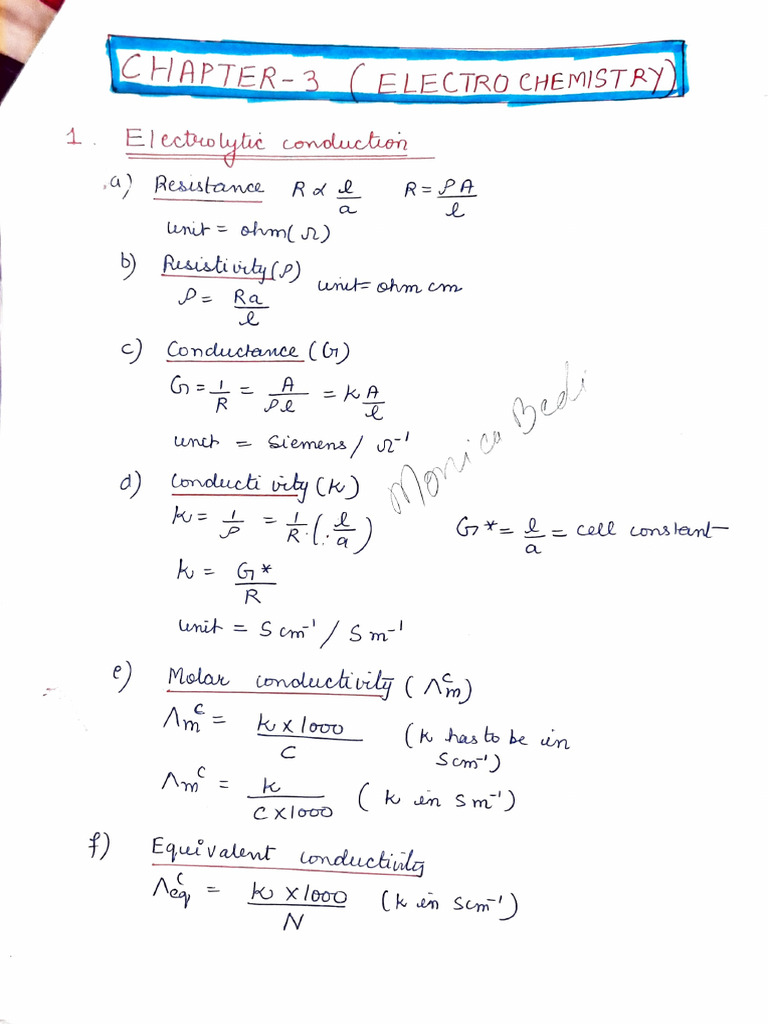 CHAPTER-3 (ELECTROCHEMISTRY)
1. Electrolytic conduction
a) Resistance R ∝ l/a R = ρA/l
unit = ohm(Ω)
b) Resistivity (ρ)
ρ = Ra/l unit = ohm cm
c) Conductance (G)
G = 1/R = A/ρl = K A/l
unit = Siemens / Ω⁻¹
Monica Bedi
d) Conductivity (K)
K = 1/ρ = 1/R . (l/a) G* = l/a = cell constant
K = G*/R
unit = S cm⁻¹ / S m⁻¹
e) Molar conductivity (Λᶜm)
Λmᶜ = K x 1000/C (K has to be in
S cm⁻¹)
Λmᶜ = K/C x 1000 (K in S m⁻¹)
f) Equivalent conductivity
Λᶜeq = K x 1000/N (K in S cm⁻¹)